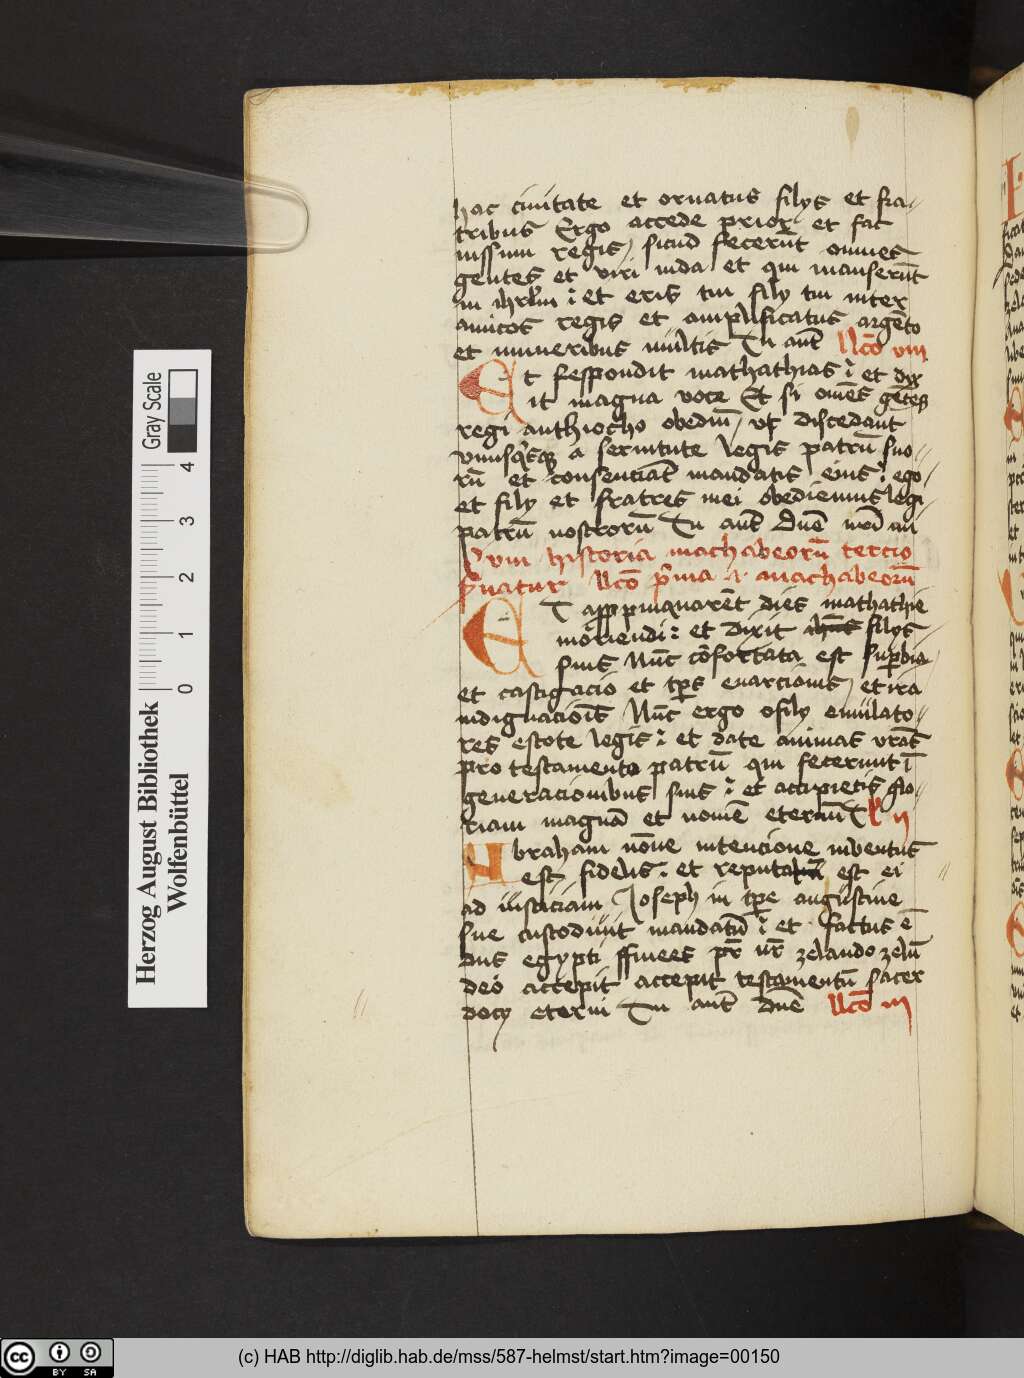 hac ciuitate et ornatus filys et fra-
tribus Ergo accede prior et fac
iussum regis sicud fecerūt omnes
gentes et viri iuda et qui manserūt
in ihrlm : et eris tu et fily tui inter
amicos regis et amplificatus argēto
et muneribus multis Tu aut̄ llc̄o viii
Et respondit mathathias : et dix
it magna voce Et si om̄es gētes
regi anthiocho obediūt vt discedant
vnusqͥsqꝫ a seruitute legis patrū suo-
rū et consenciāt mandatis eius : ego
et fily et fratres mei obediemus legi
patrū nostrorū Tu aut̄ Dn̄e
viii historia machabeorū tercio
llc̄o pͥma machabeorū
ET appropinquarēt dies mathathie
moriendi : et dixit filys
suis Nūc cōfortata est suꝑbia
et castigacio et tꝑs euercionis et ira
indignacionis Nūc ergo o fily emulato-
res estote legis : et date animas vr̄as
pro testamento patrū qui fecerunt ī
generacionibus suis : et accipietis glo-
riam magnā et nomē eternū T ll ii
Abraham nōne in tencione inuentus
est fidelis : et reputatū est ei
ad iusticiam Joseph in tꝑe angustine
sue custodiuit mandatū : et factus ē
dn̄s egypti ffinees pr̄ nr̄ zelando zelū
dei accepit accepit testamentū sacer
docy eterni Tu aut̄ dn̄e llc̄o iii
Gray Scale
0 1 2 3 4
Herzog August Bibliothek
Wolfenbüttel
cc BY SA
(c) HAB http://diglib.hab.de/mss/587-helmst/start.htm?image=00150